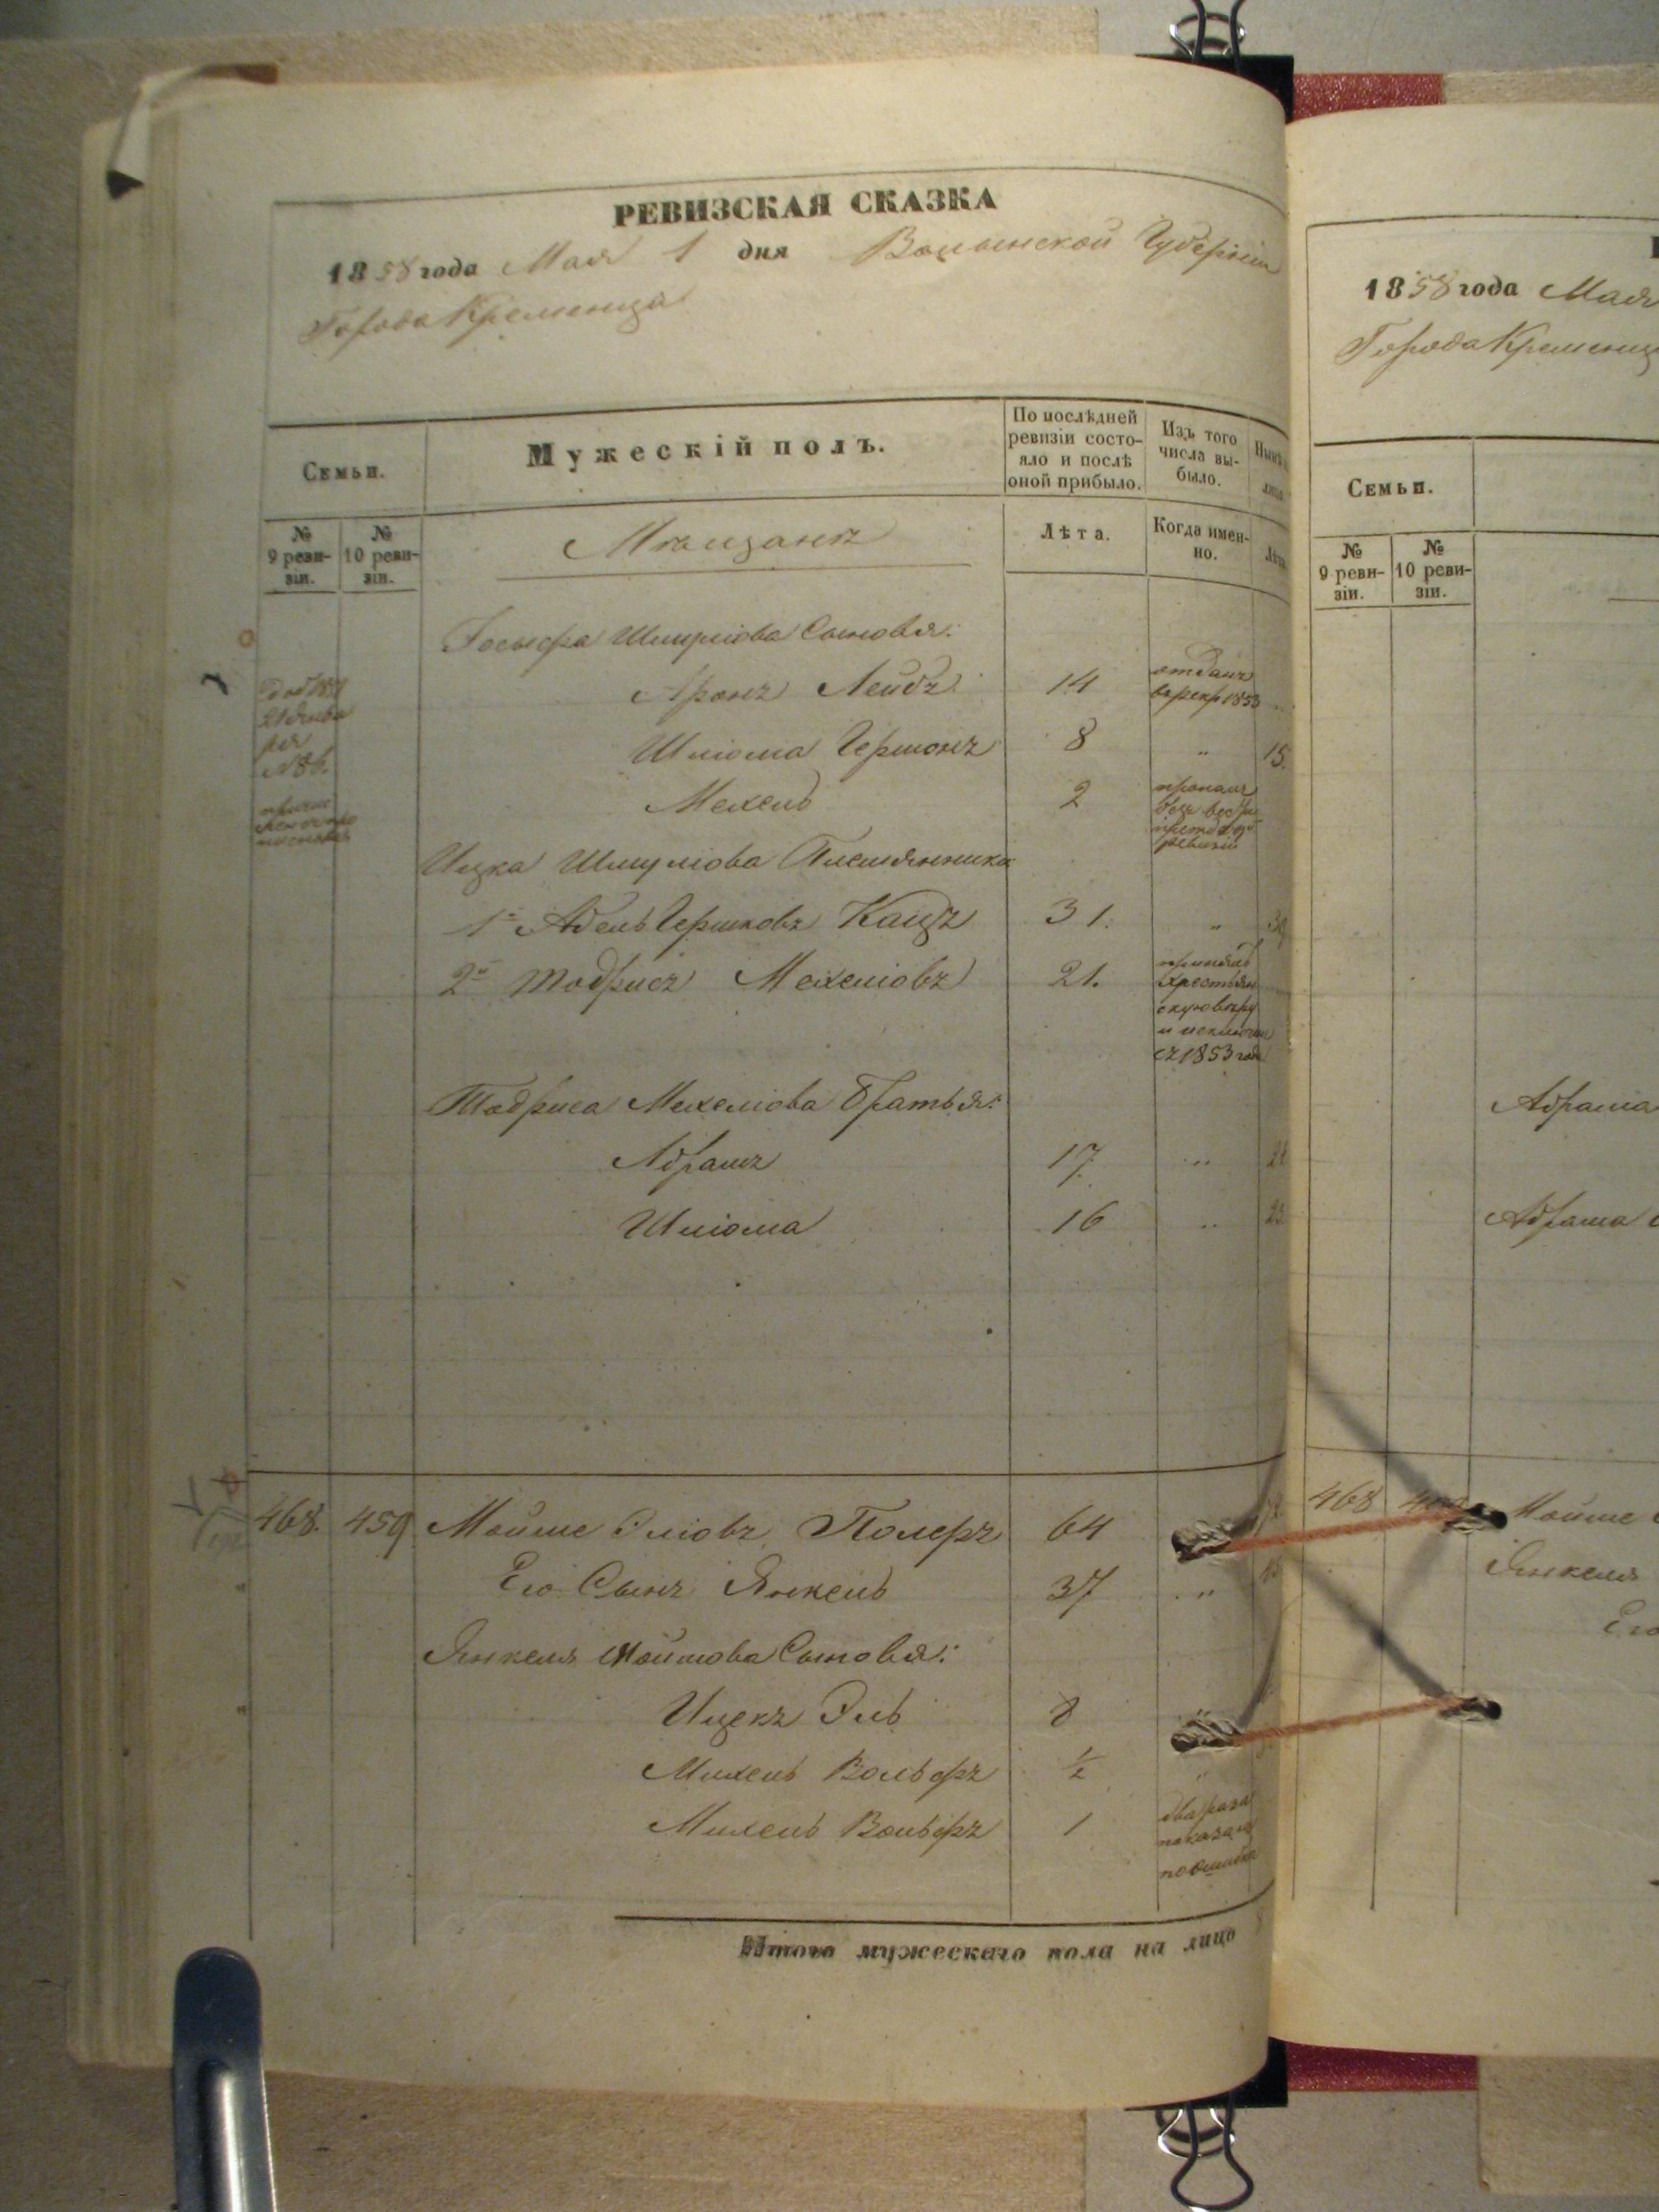 РЕВИЗСКАЯ СКАЗКА
1858 года Мая 1 дня Волынской Губерніи
Города Кременца
Семьи.
Мужескій полъ.
По послѣдней ревизіи состо-
яло и послѣ
оной прибыло.
Изъ того
числа вы-
было.
№
9 реви-
зіи.
№
10 реви-
зіи.
Мѣщанъ
Лѣта.
Когда имен-
но.
Іосьфа Шмуліова Сыновья:
Аронъ Лейбъ 14 отданъ
въ рекр 1853
Шліома Гершонъ 8 " 15.
Мехель 2 пропалъ
безъ вѣсти
ревизіи
Ицка Шмуліова Племянники
1й Абель Гершковъ Кацъ 31. "
2й Тодрисъ Мехеліовъ 21. принялъ
христіян
скую вѣру
и исключен
съ 1853 года
Тодриса Мехеліова Братья:
Абрамъ 17 "
Шліома 16 " 25
468. 459 Мойше Эліовъ Полеръ 64
Его Сынъ Янкель 37 "
Янкеля Мошкова Сыновья:
Ицекъ Эль 8
Михель Вольфъ ½ "
Михель Вольфъ 1 два раза
показанъ
по ошибке
Итого мужескаго пола на лицо
1858 года Мая
Города Кременца
Семьи.
№
9 реви-
зіи.
№
10 реви-
зіи.
Абрама
468 Мойше
Янкеля
Его